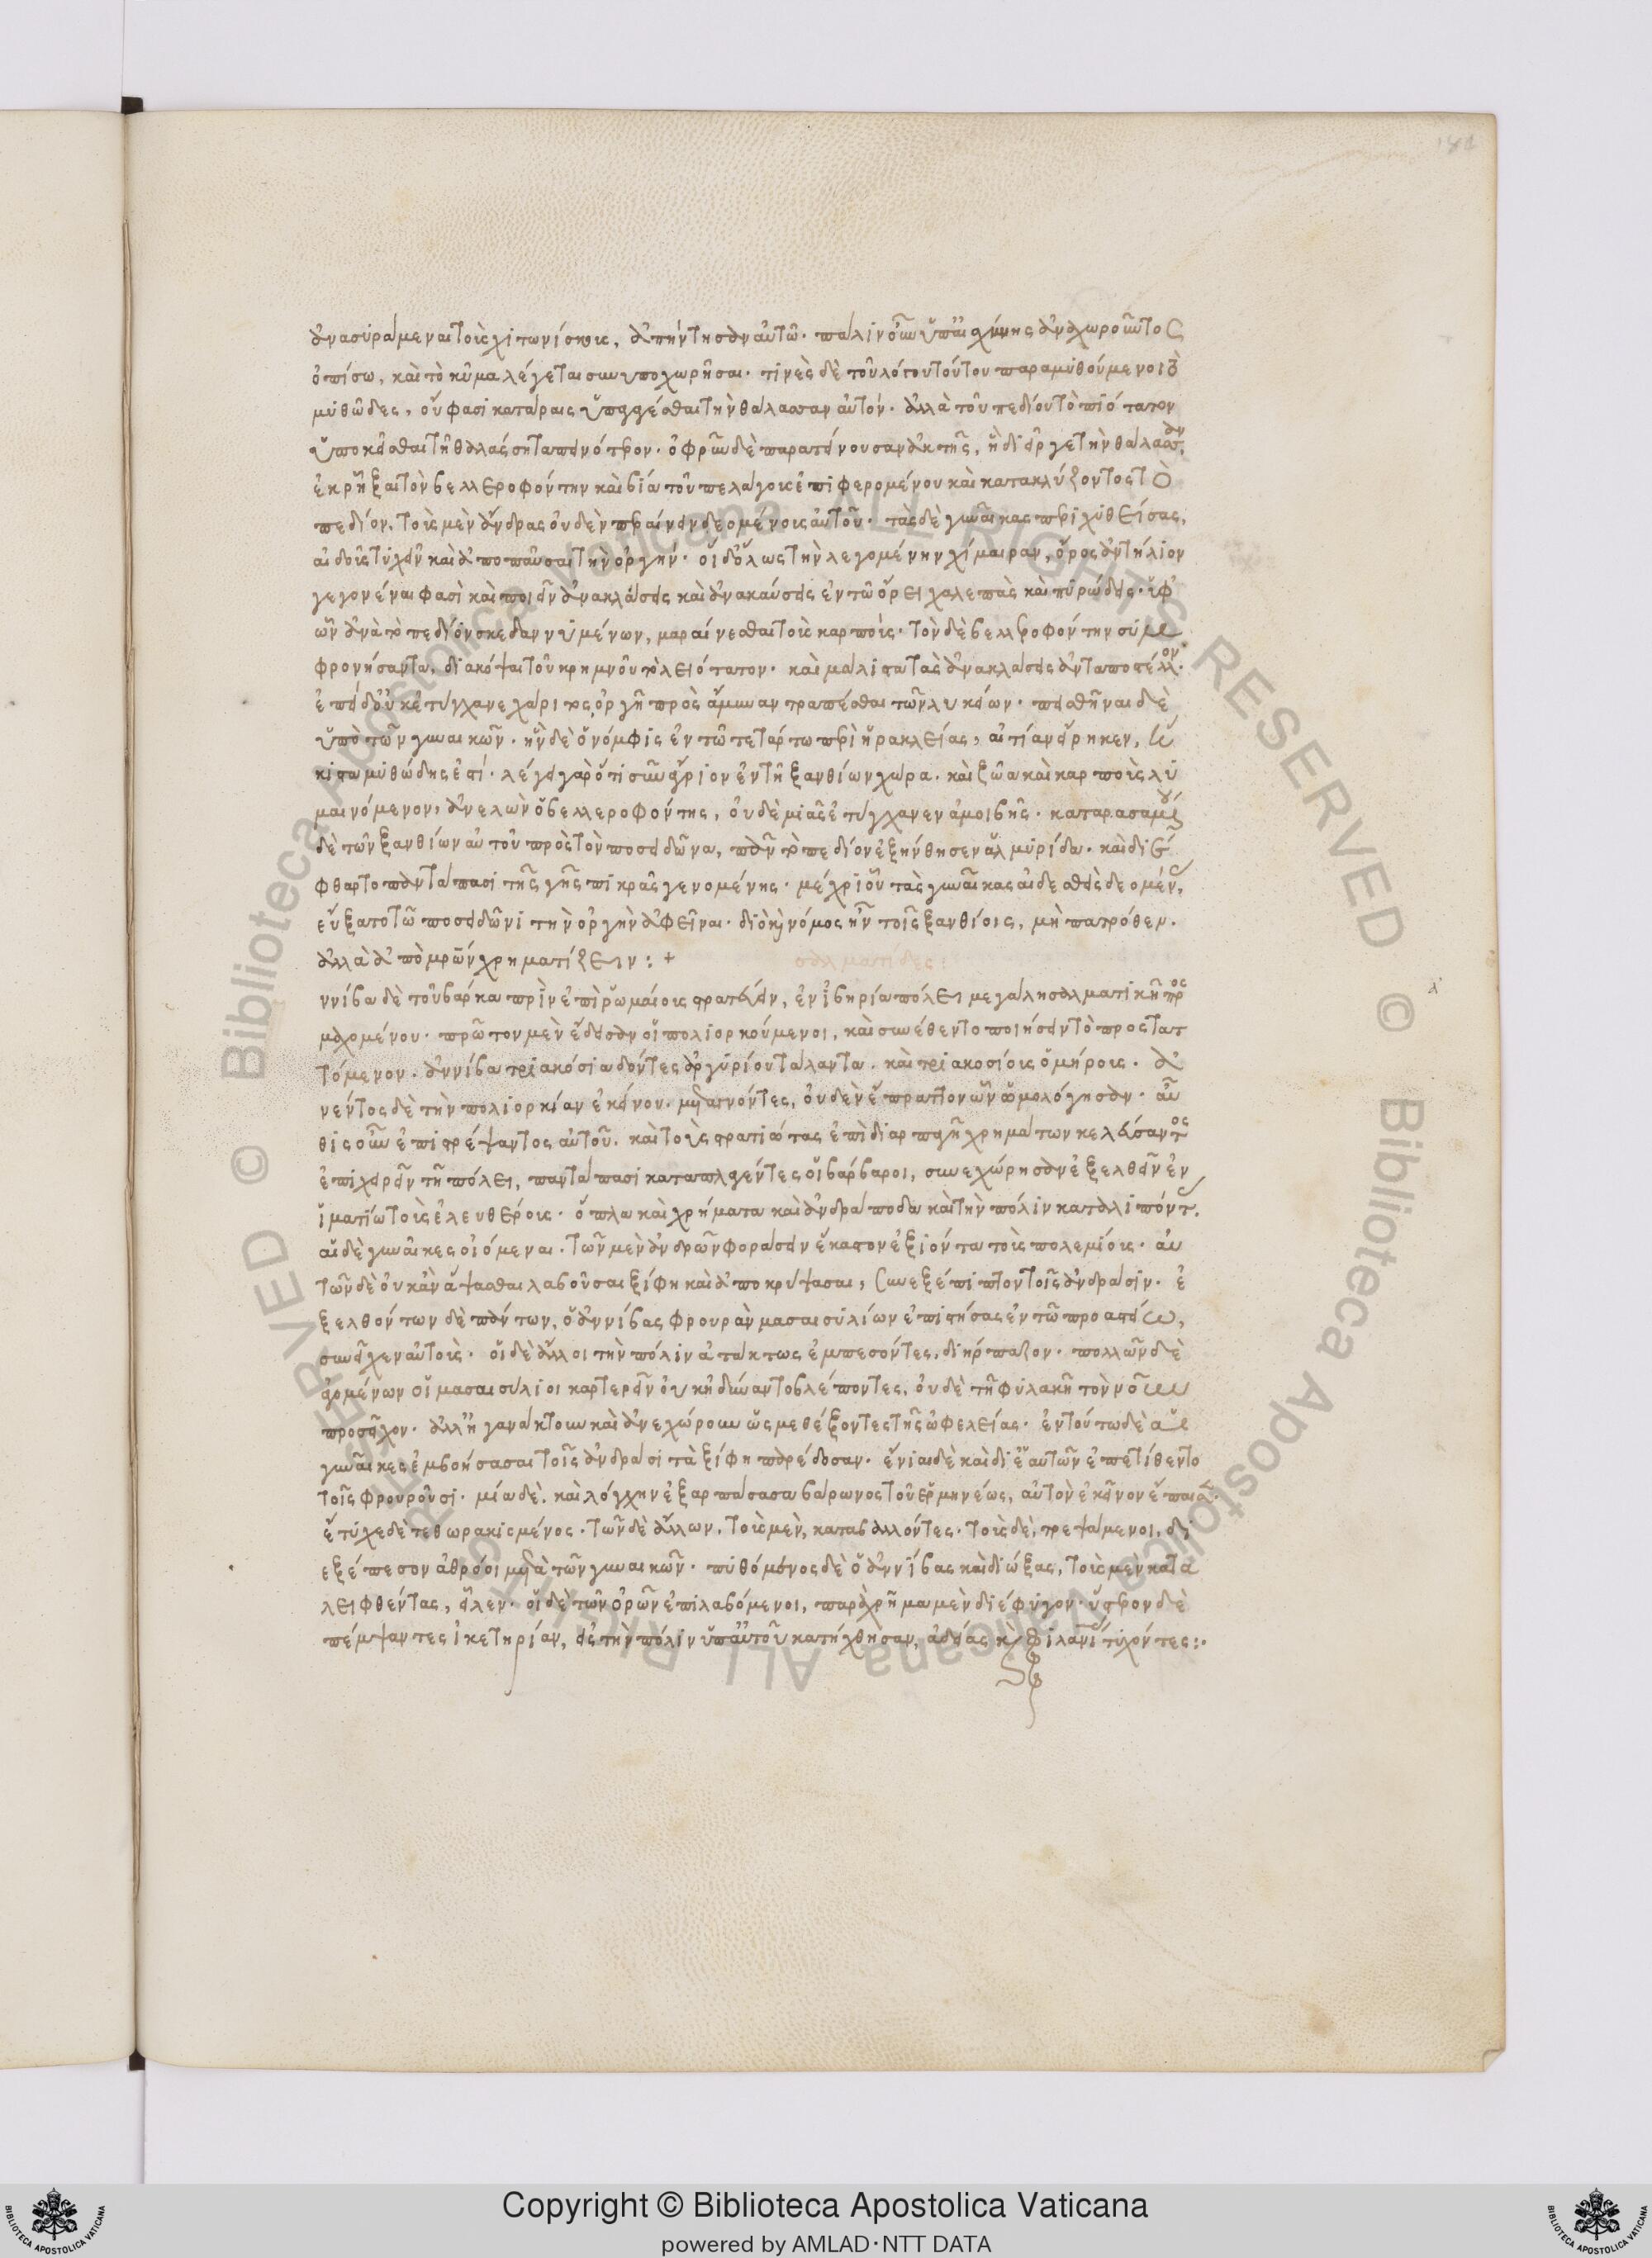 ἀνασυράμεναι τοὺς χιτωνίσκους, ἀπήντησαν αὐτῷ· πάλιν οὖν ὑπ' αἰσχύνης ἀναχωροῦντος
ὀπίσω, καὶ τὸ κῦμα λέγεται συνυποχωρῆσαι· τινὲς δὲ τοῦ λόγου τούτου παραμυθούμενοι τὸ
μυθῶδες, οὔ φασι κατάραις ὑπαγέσθαι τὴν θάλασσαν αὐτόν· ἀλλὰ τοῦ πεδίου τὸ πιότατον
ὑποκεῖσθαι τῇ θαλάσσῃ ταπεινότερον· ὀφρῦν δὲ παρατείνουσαν ἀκτῆς, ἣ διεῖργε τὴν θάλασσαν,
ἐκρῆξαι τὸν βελλεροφόντην καὶ βίᾳ τοῦ πελάγους ἐπιφερομένου καὶ κατακλύζοντος τὸ
πεδίον, τοὺς μὲν ἄνδρας οὐδὲν περαίνειν δεομένους αὐτοῦ· τὰς δὲ γυναῖκας περιχυθείσας,
αἰδοῦς τυχεῖν καὶ ἀποπαῦσαι τὴν ὀργήν· οἱ δ' ὅλως τὴν λεγομένην χίμαιραν, ὄρος ἀντήλιον
γεγονέναι φασὶ καὶ ποιεῖν ἀνακλάσεις καὶ ἀνακαύσεις ἐν τῷ θέρει χαλεπὰς καὶ πυρώδεις· ὑφ'
ὧν ἀνὰ τὸ πεδίον σκεδαννυμένων, μαραίνεσθαι τοὺς καρπούς· τὸν δὲ βελλεροφόντην συμ
φρονήσαντα, διακόψαι τοῦ κρημνοῦ τὸ λειότατον· καὶ μάλιστα τὰς ἀνακλάσεις ἀνταποστέλλον·
ἐπεὶ δ' οὐκ ἐτύγχανε χάριτος, ὀργῇ πρὸς ἄμυναν τραπέσθαι τῶν λυκίων· πεισθῆναι δὲ
ὑπὸ τῶν γυναικῶν· ἣν δὲ ὁ νύμφις ἐν τῷ τετάρτῳ περὶ ἡρακλείας, αἰτίαν εἴρηκεν,
ἥκιστα μυθώδης ἐστί· λέγει γὰρ ὅτι σῦν ἄγριον ἐν τῇ ξανθίων χώρᾳ, καὶ ζῷα καὶ καρποὺς λυ
μαινόμενον, ἀνελὼν ὁ βελλεροφόντης, οὐδεμιᾶς ἐτύγχανεν ἀμοιβῆς· καταρασαμένου
δὲ τῶν ξανθίων αὐτοῦ πρὸς τὸν ποσειδῶνα, πᾶν τὸ πεδίον ἐξήνθησεν ἁλμυρίδα· καὶ διέ
φθαρτο παντάπασι τῆς γῆς πικρᾶς γενομένης· μέχρι οὗ τὰς γυναῖκας αἰδεσθεὶς δεομένας,
εὔξατο τῷ ποσειδῶνι τὴν ὀργὴν ἀφεῖναι· διὸ καὶ νόμος ἦν τοῖς ξανθίοις, μὴ πατρόθεν·
ἀλλὰ ἀπὸ μητρῶν χρηματίζειν: + σαλματίδες:
ννίβα δὲ τοῦ βάρκα πρὶν ἐπὶ ῥωμαίους στρατεύειν, ἐν ἰβηρίᾳ πόλει μεγάλῃ σαλματικῇ προς
μαχομένου· πρῶτον μὲν ἔδεισαν οἱ πολιορκούμενοι, καὶ συνέθεντο ποιήσειν τὸ προστατ
τόμενον· ἀννίβᾳ τριακόσια δόντες ἀργυρίου τάλαντα, καὶ τριακοσίους ὁμήρους· ἀ
νέντος δὲ τὴν πολιορκίαν ἐκείνου, μεταγνόντες, οὐδὲν ἔπραττον ὧν ὡμολόγησαν· αὖ
θις οὖν ἐπιστρέψαντος αὐτοῦ, καὶ τοὺς στρατιώτας ἐπὶ διαρπαγῇ χρημάτων κελεύσαντος
ἐπιχειρεῖν τῇ πόλει, παντάπασι καταπλαγέντες οἱ βάρβαροι, συνεχώρησαν ἐξελθεῖν ἐν
ἱματίῳ τοὺς ἐλευθέρους· ὅπλα καὶ χρήματα καὶ ἀνδράποδα καὶ τὴν πόλιν καταλιπόντας·
αἱ δὲ γυναῖκες οἰόμεναι· τῶν μὲν ἀνδρῶν φωράσειν ἕκαστον ἐξιόντα τοὺς πολεμίους· αὐ
τῶν δὲ οὐκ ἂν ἅψασθαι λαβοῦσαι ξίφη καὶ ἀποκρύψασαι, συνεξέπιπτον τοῖς ἀνδράσιν· ἐ
ξελθόντων δὲ πάντων, ὁ ἀννίβας φρουρὰν μασαισυλίων ἐπιστήσας ἐν τῷ προαστείῳ,
συνεῖχεν αὐτούς· οἱ δὲ ἄλλοι τὴν πόλιν ἀτάκτως ἐμπεσόντες, διήρπαζον· πολλῶν δὲ
ἀγομένων οἱ μασαισύλιοι καρτερεῖν οὐκ ἠδύναντο βλέποντες, οὐδὲ τῇ φυλακῇ τὸν νοῦν
προσεῖχον· ἀλλ' ἠγανάκτουν καὶ ἀνεχώρουν ὡς μεθέξοντες τῆς ὠφελείας· ἐν τούτῳ δὲ αἱ
γυναῖκες ἐμβοήσασαι τοῖς ἀνδράσι τὰ ξίφη παρέδοσαν· ἔνιαι δὲ καὶ δι' ἑαυτῶν ἐπετίθεντο
τοῖς φρουροῦσι· μία δὲ, καὶ λόγχην ἐξαρπάσασα βάρωνος τοῦ ἑρμηνέως, αὐτὸν ἐκεῖνον ἔπαισεν·
ἔτυχε δὲ τεθωρακισμένος· τῶν δὲ ἄλλων, τοὺς μὲν, καταβάλλοντες· τοὺς δὲ, τρεψάμενοι, δι
εξέπεσον ἀθρόοι μετὰ τῶν γυναικῶν· πυθόμενος δὲ ὁ ἀννίβας καὶ διώξας, τοὺς μὲν κατα
λειφθέντας, εἷλεν· οἱ δὲ τῶν ὀρῶν ἐπιλαβόμενοι, παραχρῆμα μὲν διέφυγον· ὕστερον δὲ
πέμψαντες ἱκετηρίαν, εἰς τὴν πόλιν ὑπ' αὐτοῦ κατήχθησαν, ἀδείας καὶ φιλανθρωπίας τυχόντες:·
Copyright © Biblioteca Apostolica Vaticana
powered by AMLAD·NTT DATA
© Biblioteca Apostolica Vaticana ALL RIGHTS RESERVED © Biblioteca Apostolica Vaticana ALL RIGHTS RESERVED
BIBLIOTECA APOSTOLICA VATICANA
BIBLIOTECA APOSTOLICA VATICANA